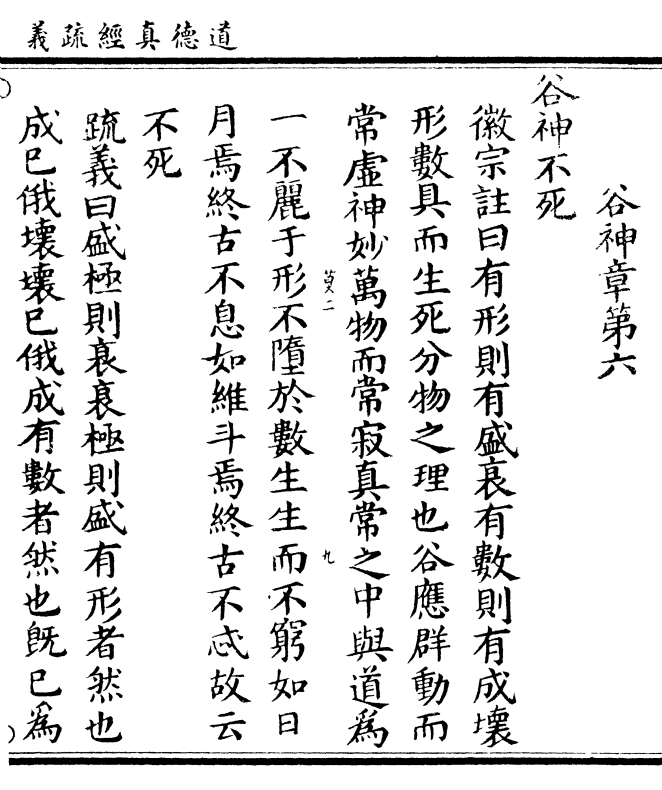 道德真經疏義
谷神章第六
谷神不死
徽宗註曰有形則有盛衰有數則有成壞
形數具而生死分物之理也谷應群動而
常虛神妙萬物而常寂真常之中與道為
一不麗于形不墮於數生生而不窮如日
月焉終古不息如維斗焉終古不忒故云
不死
疏義曰盛極則衰衰極則盛有形者然也
成已俄壞壞已俄成有數者然也既已為
二
九